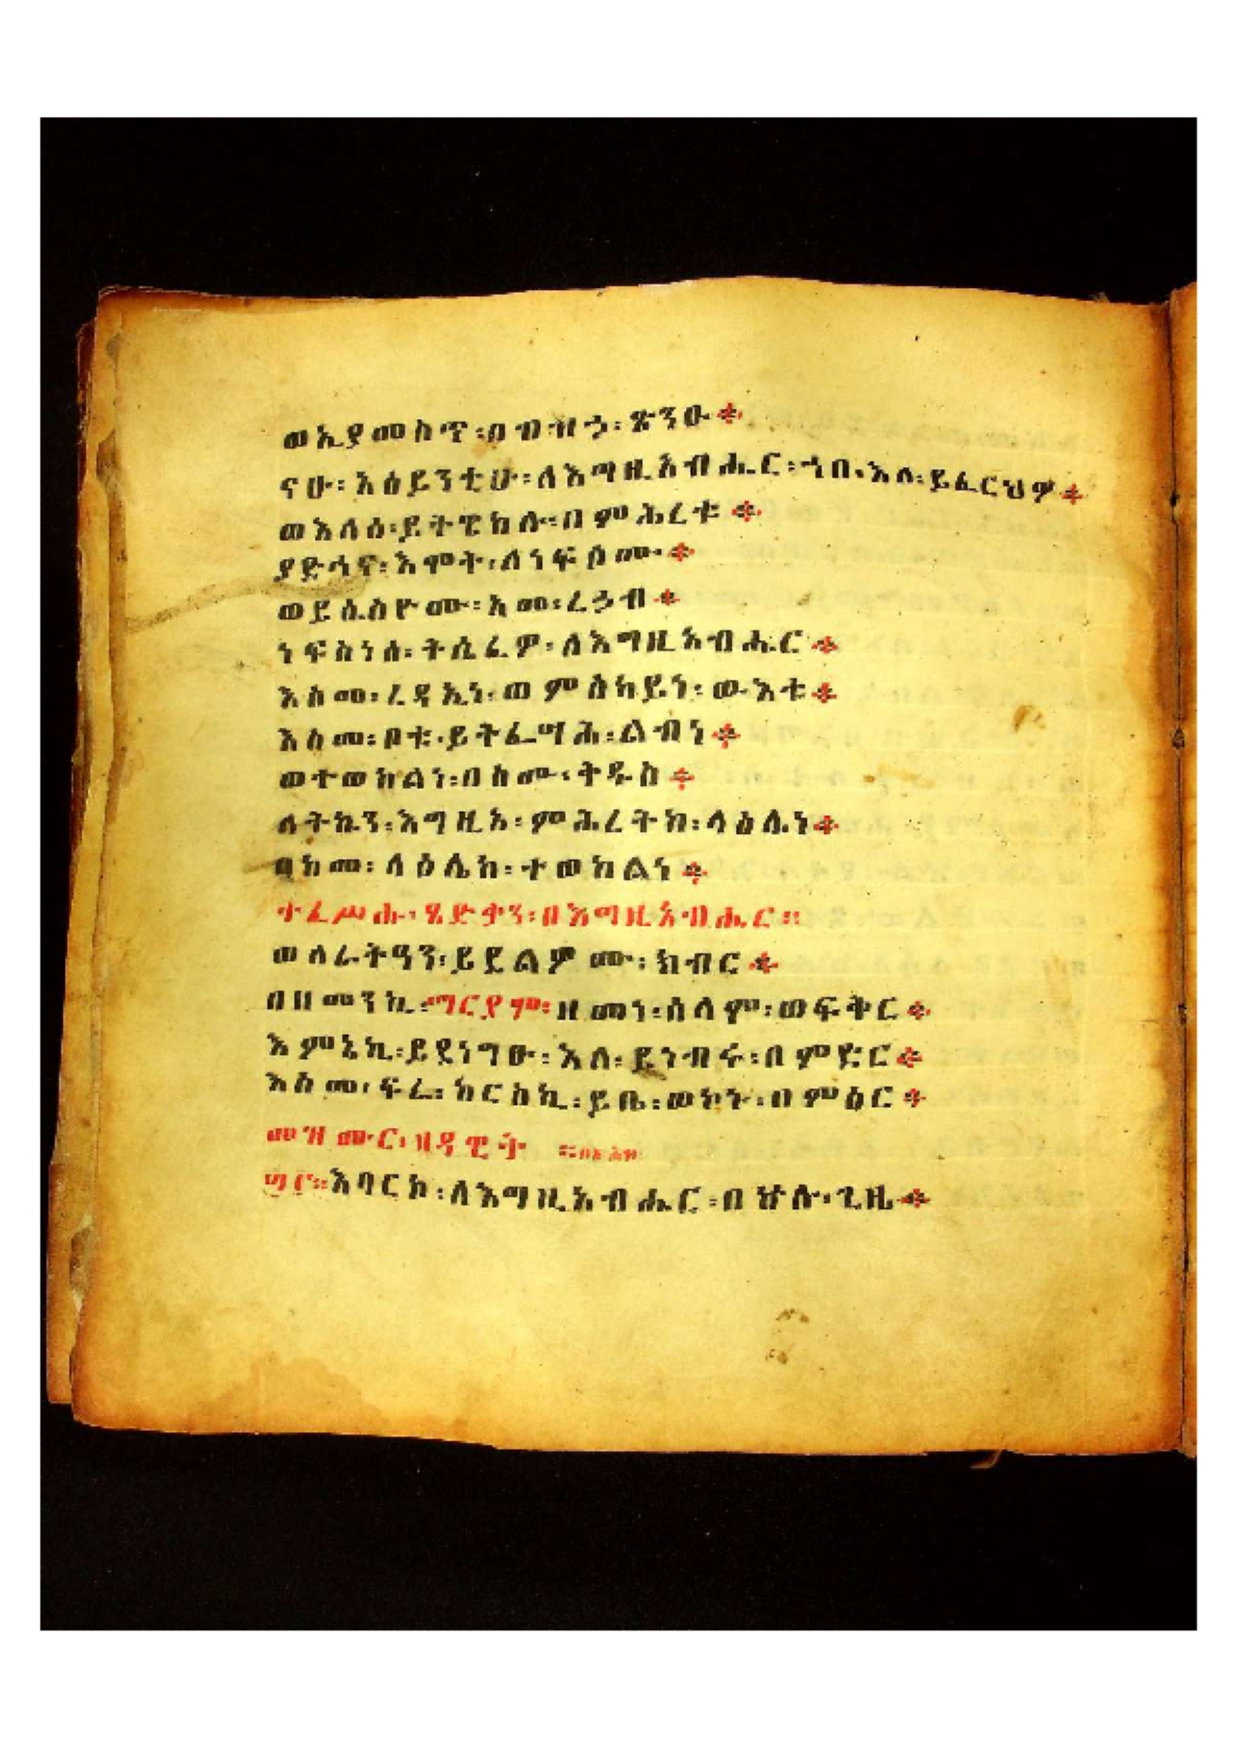 ወኢያመስጥ፡በብዝኃ፡ጽንዑ፨
ናሁ፡አዕይንቲሁ፡ለእግዚአብሔር፡ኀበ፡እለ፡ይፈርህዎ፨
ወእለሰ፡ይትዌከሉ፡በምሕረቱ፨
ያድኅና፡እሞት፡ለነፍሶሙ፨
ወይሴስዮሙ፡አመ፡ረኃብ፨
ነፍስነሰ፡ትሴፈዎ፡ለእግዚአብሔር፨
እስመ፡ረዳኢነ፡ወምስካይነ፡ውእቱ፨
እስመ፡ቦቱ፡ይትፌሣሕ፡ልብነ፨
ወተወከልነ፡በስሙ፡ቅዱስ፨
ለትኩን፡እግዚኦ፡ምሕረትከ፡ላዕሌነ፨
በከመ፡ላዕሌከ፡ተወከልነ፨
ተፈሥሑ፡ጻድቃን፡በእግዚአብሔር።
ወለራትዓን፡ይደልዎሙ፡ክብር፨
በዘመንኪ፡ማርያም፡ዘመነ፡ሰላም፡ወፍቅር፨
እምኔኪ፡ይደነግፁ፡እለ፡ይነብሩ፡በምድር፨
እስመ፡ፍሬ፡ከርስኪ፡ይቤ፡ወኮኑ፡በምዕር፨
መዝሙር፡ዘዳዊት
እባርኮ፡ለእግዚአብሔር፡በኵሉ፡ጊዜ፨